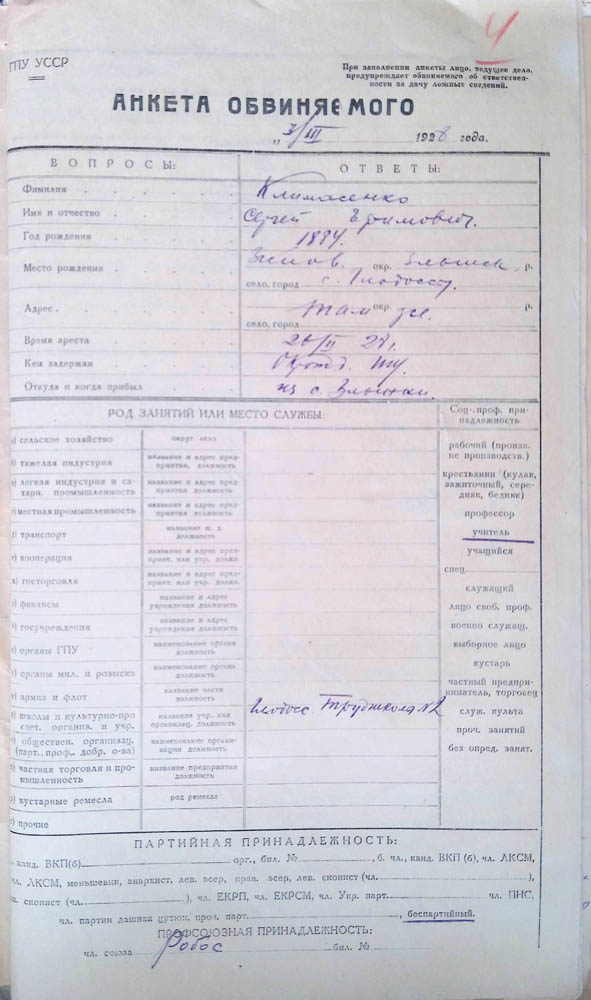 4
ГПУ УССР
При заполнении анкеты лицо, ведущее дело,
предупреждает обвиняемого об ответствен-
ности за дачу ложных сведений.
АНКЕТА ОБВИНЯЕМОГО
„3/III 1928 года.
ВОПРОСЫ: ОТВЕТЫ:
Фамилия Климасенко
Имя и отчество Сергей Ефимович.
Год рождения 1884.
Место рождения Зинов. окр. Злынск. р.
село, город с. Глодоссы.
Адрес. Там окр. же. р.
село, город
Время ареста 26/II 28 г.
Кем задержан ГПУ
Откуда и когда прибыл из с. Злынки.
РОД ЗАНЯТИЙ ИЛИ МЕСТО СЛУЖБЫ:
Соц.-проф. при-
надлежность
а) сельское хозяйство округ село
рабочий (произв.
не производств.)
б) тяжелая индустрия название и адрес пред-
приятия, должность
крестьянин (кулак,
зажиточный, сере-
дняк, бедняк)
в) легкая индустрия и са-
харн. промышленность название и адрес пред-
приятия должность
г) местная промышленность название и адрес пред-
приятия должность
профессор
д) транспорт название ж. д.
должность
учитель
е) кооперация название и адрес пред-
прият. или учр. должн.
учащийся
ж) госторговля название и адрес пред-
прият. или учр. должн.
спец
з) финансы название и адрес
учреждения должность
служащий
лицо своб. проф.
и) госучреждения название и адрес
учреждения должность
военно служащ.
к) органы ГПУ наименование органа
должность
выборное лицо
кустарь
л) органы мил. и розыска наименование органа
должность
частный предпри-
ниматель, торговец
м) армия и флот название части
должность
н) школы и культурно-про
свет. организ. и учр. название учр. или
организац. должность Глодосс Трудшкола №2
служ. культа
о) обществен. организац.
(парт., проф., добр. о-ва) наименование органи-
зации должность
проч. занятий
без опред. занят.
п) частная торговля и про-
мышленность название предприятия
должность
р) кустарные ремесла род ремесла
с) прочие
ПАРТИЙНАЯ ПРИНАДЛЕЖНОСТЬ:
канд. ВКП(б) орг., бил. № , б. чл., канд. ВКП (б), чл. ЛКСМ,
чл. ЛКСМ, меньшевик, анархист, лев. эсер, прав. эсер, лев. сионист (чл. ),
сионист (чл. ), чл. ЕКРП, чл. ЕКРСМ, чл. Укр. парт. чл. ПНС,
чл. партии дашнак цутюн, проч. парт. , беспартийный.
ПРОФСОЮЗНАЯ ПРИНАДЛЕЖНОСТЬ:
чл. союза Робос бил. №